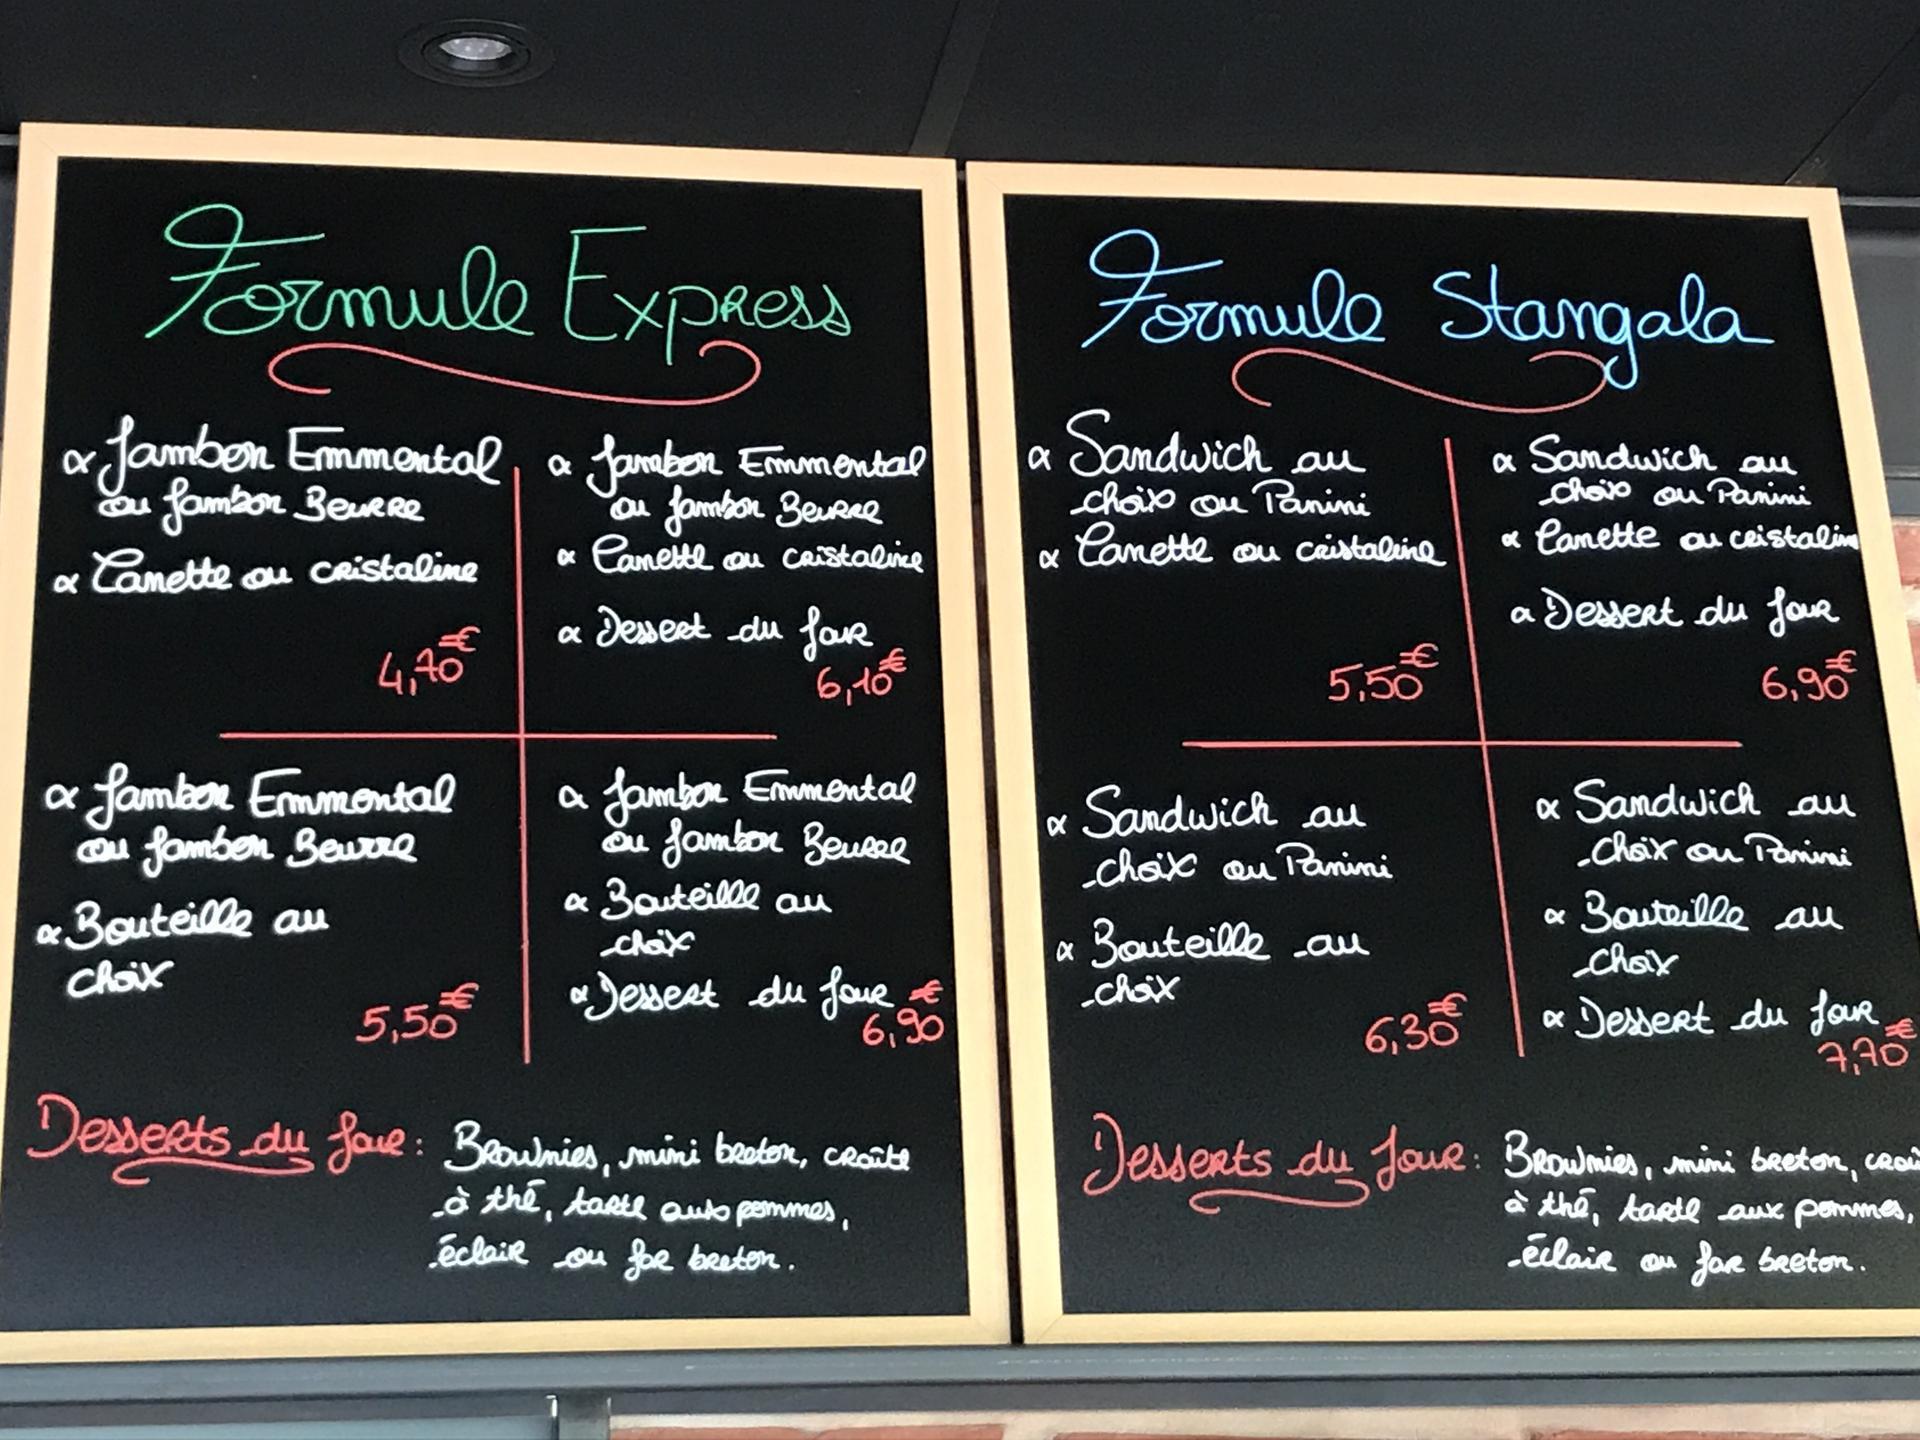 Formule Express
∝ Jambon Emmental
ou Jambon Beurre
∝ Canette ou cristaline
4,70€
∝ Jambon Emmental
ou Jambon Beurre
∝ Canette ou cristaline
∝ Dessert du Jour
6,10€
∝ Jambon Emmental
ou Jambon Beurre
∝ Bouteille au
choix
5,50€
∝ Jambon Emmental
ou Jambon Beurre
∝ Bouteille au
choix
∝ Dessert du Jour
6,90€
Desserts du Jour : Brownies, mini breton, croûte
à thé, tarte aux pommes,
éclair ou far breton.
Formule Stangala
∝ Sandwich au
choix ou Panini
∝ Canette ou cristaline
5,50€
∝ Sandwich au
choix ou Panini
∝ Canette ou cristalin
∝ Dessert du Jour
6,90€
∝ Sandwich au
choix ou Panini
∝ Bouteille au
choix
6,30€
∝ Sandwich au
choix ou Panini
∝ Bouteille au
choix
∝ Dessert du Jour
7,70€
Desserts du Jour : Brownies, mini breton, croû
à thé, tarte aux pommes,
éclair ou far breton.